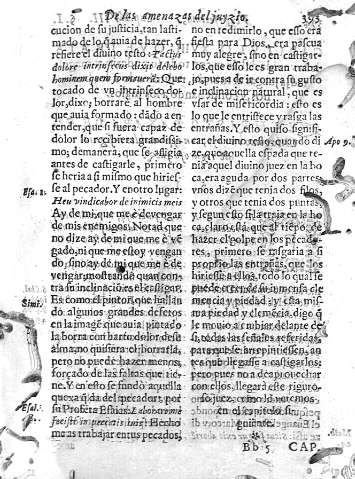 De las amenazas del juyzio.
cucion de su justicia, tan lasti-
mado de lo q̃ auia de hazer, q̃
refiere el diuino testo: Tactus
dolore intrinsecus dixit delebo
hominem quem formaueram: Que
tocado de vn intrinseco do-
lor, dixo; borrare al hombre
que auia formado: dãdo a en-
tender, que si fuera capaz de
dolor lo recibiera grandissi-
mo; demanera, que se afligia
antes de castigarle, primero
se heria a si mismo que hiries-
se al pecador. Y en otro lugar:
Esa. 1.
Heu vindicabor de inimicis meis
Ay de mi, que me è de vengar
de mis enemigos: Notad que
no dize ay de mi que me è vẽ-
gado, ni que me estoy vengan-
do, sino ay de mi que me è de
vengar, mostrando quan con-
tra su inclinaciõ es el castigar.
Simi.
Es como el pintor, que hallan
do algunos grandes defetos
en la imagẽ que auia pintado
la borra con harto dolor de su
alma, no quisiera el borrarla,
pero no puede hazer menos,
forçado de las faltas que tie-
ne. Y en esto se fundò aquella
quexa q̃ da del pecador, por
Esa.
su Profeta Esaias: Laborare me
fecisti in peccatis tuis: Hecho
me as trabajar en tus pecados,
no en redimirlo, que esso era
fiesta para Dios, era pascua
muy alegre, sino en castigar-
los, que esso le es gran traba-
jo, pues a de ir contra su gusto
e inclinacion natural, que es
vsar de misericordia: esto es
lo que le entristece y rasga las
entrañas. Y esto quiso signifi-
Apo 9.
car el diuino testo, quando di
ze, que aquella espada que te-
nia aquel diuino juez en la bo
ca, era aguda por dos partes,
vnos dizẽ que tenia dos filos,
y otros que tenia dos puntas,
y segun esto si la traia en la bo
ca, claro està, que al tiẽpo, de
hazer el golpe en los pecado-
res, primero se rasgaria a si
proprio las entrañas, que los
hiriesse a ellos, todo lo qual se
puede creer de su inmensa cle
mencia y piedad: y esta mis-
ma piedad y clemẽcia, digo q̃
le mueue a embiar delante de
si, todas las señales referidas,
para que se arrepintiessen, an-
tes que llegasse a castigarlos;
pero pues no a de aprouechar
con ellos, llegarà este riguro-
so juez, como lo veremos
en el capitulo si-
guiente.
Bb 5 CAP.